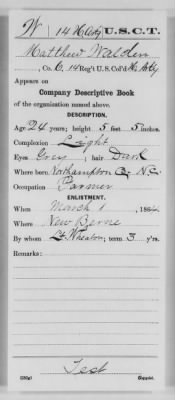 W 14 H Arty U.S.C.T.
Matthew Walden
, Co. C, 14 Reg't U.S. Col'd H. Arty
Appears on
Company Descriptive Book
of the organization named above.
DESCRIPTION.
Age 24 years; height 5 feet 5 inches.
Complexion Light
Eyes Grey; hair Dark
Where born Northampton Co N.C.
Occupation Farmer
ENLISTMENT.
When March 1, 186
Where New Berne
By whom Lt. Wheaton; term 3 y'rs.
Remarks:
Test
Copyist.